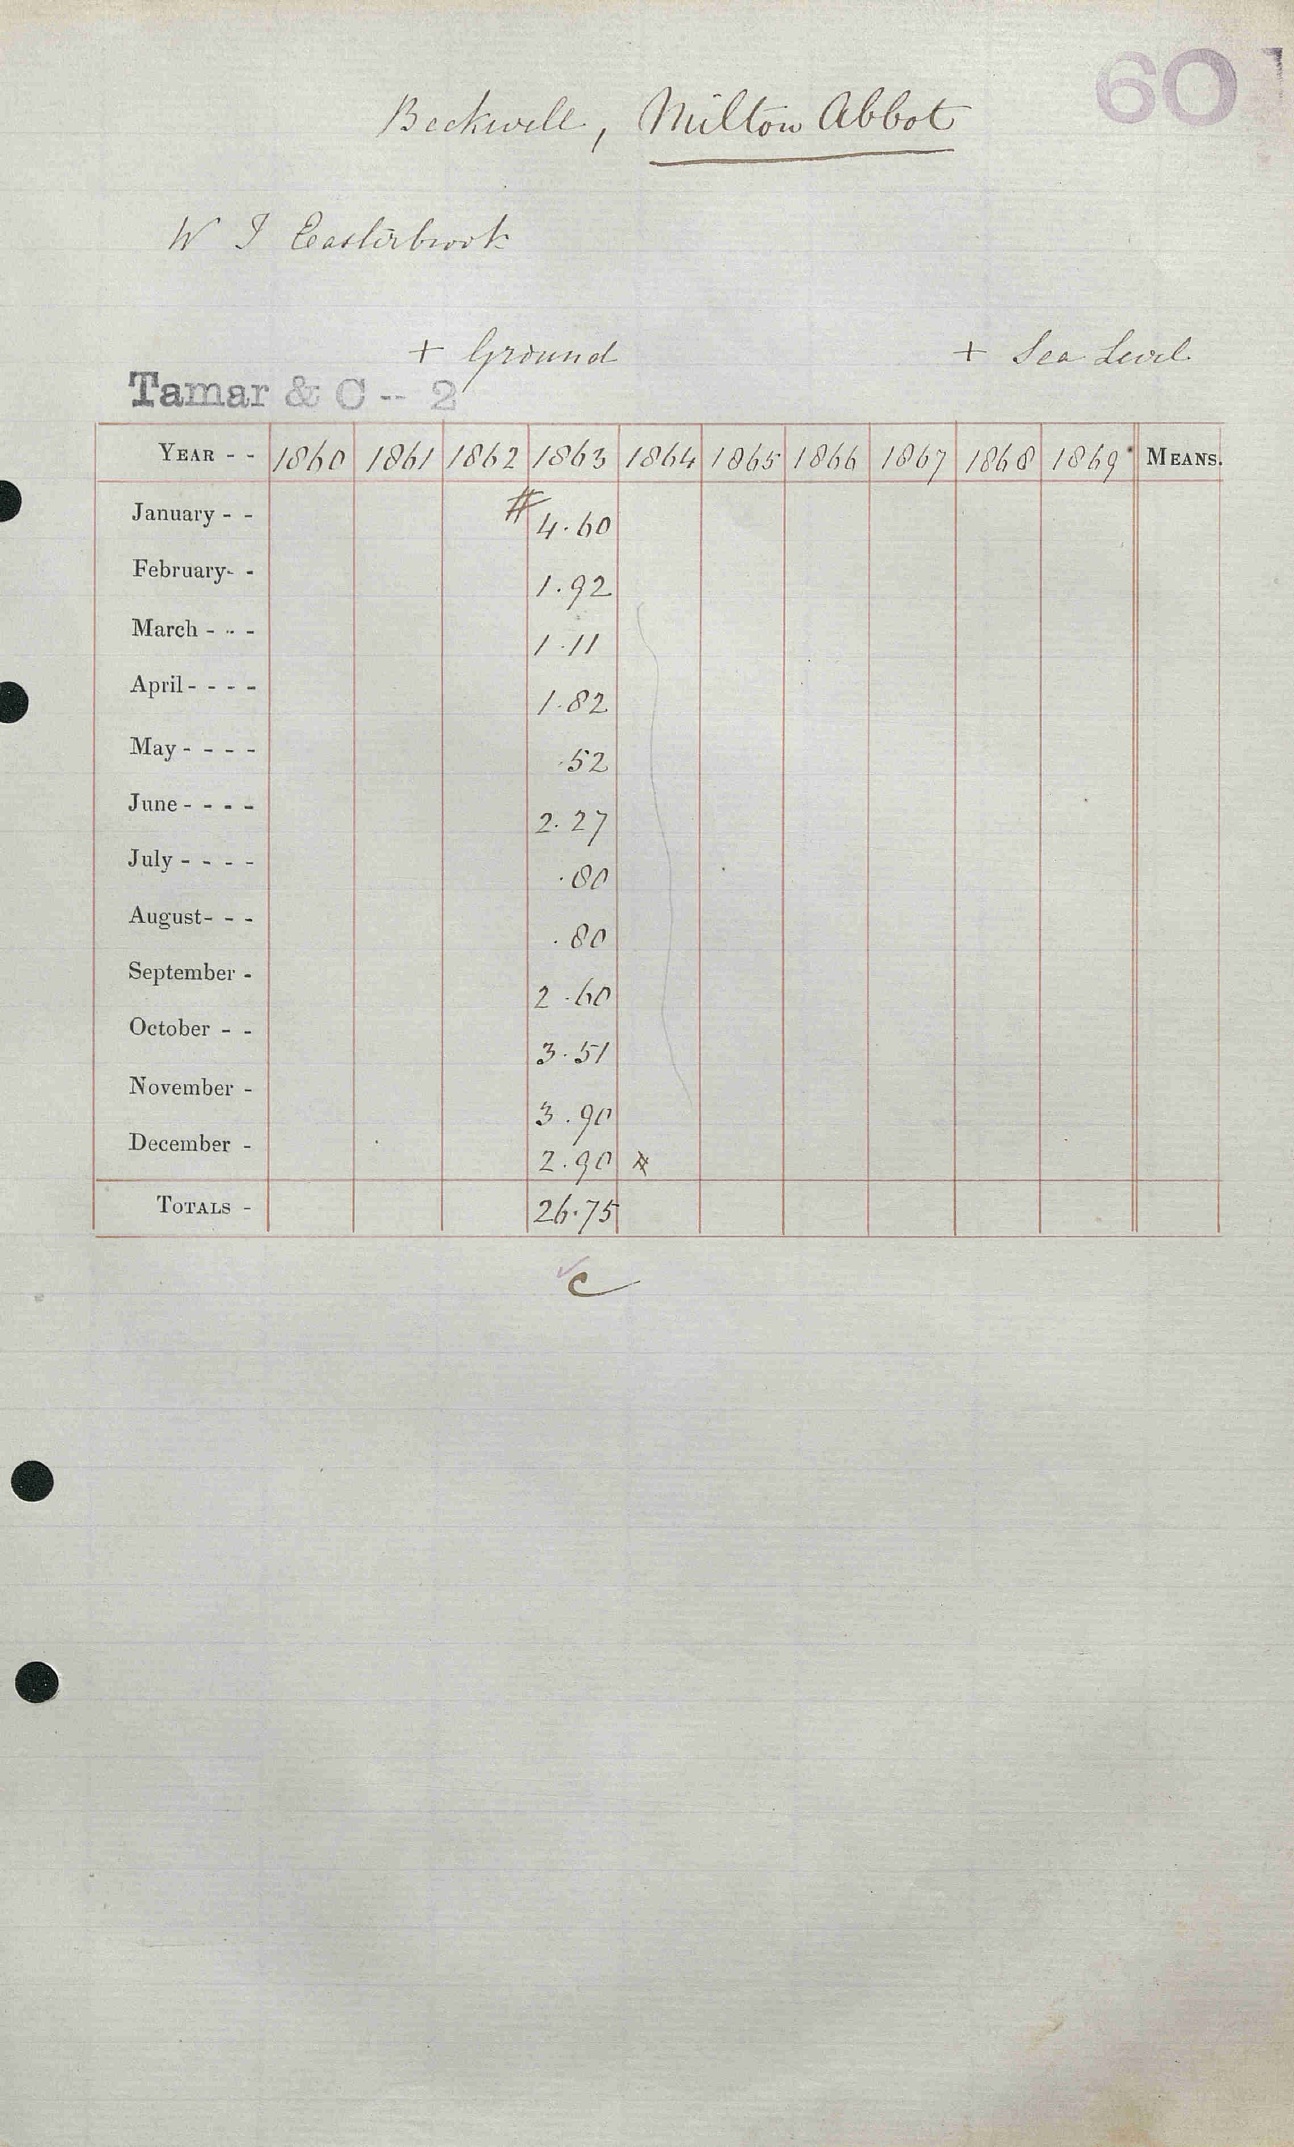 60
Beckwell, Milton Abbot
W J Easterbrook
+ Ground + Sea Level
Tamar & C -- 2
YEAR - - 1860 1861 1862 1863 1864 1865 1866 1867 1868 1869 MEANS.
January - - # 4.60
February- - 1.92
March - - - 1.11
April - - - - 1.82
May - - - - .52
June - - - - 2.27
July - - - - .80
August- - - .80
September - 2.60
October - - 3.51
November - 3.90
December - 2.90 #
TOTALS - 26.75
C